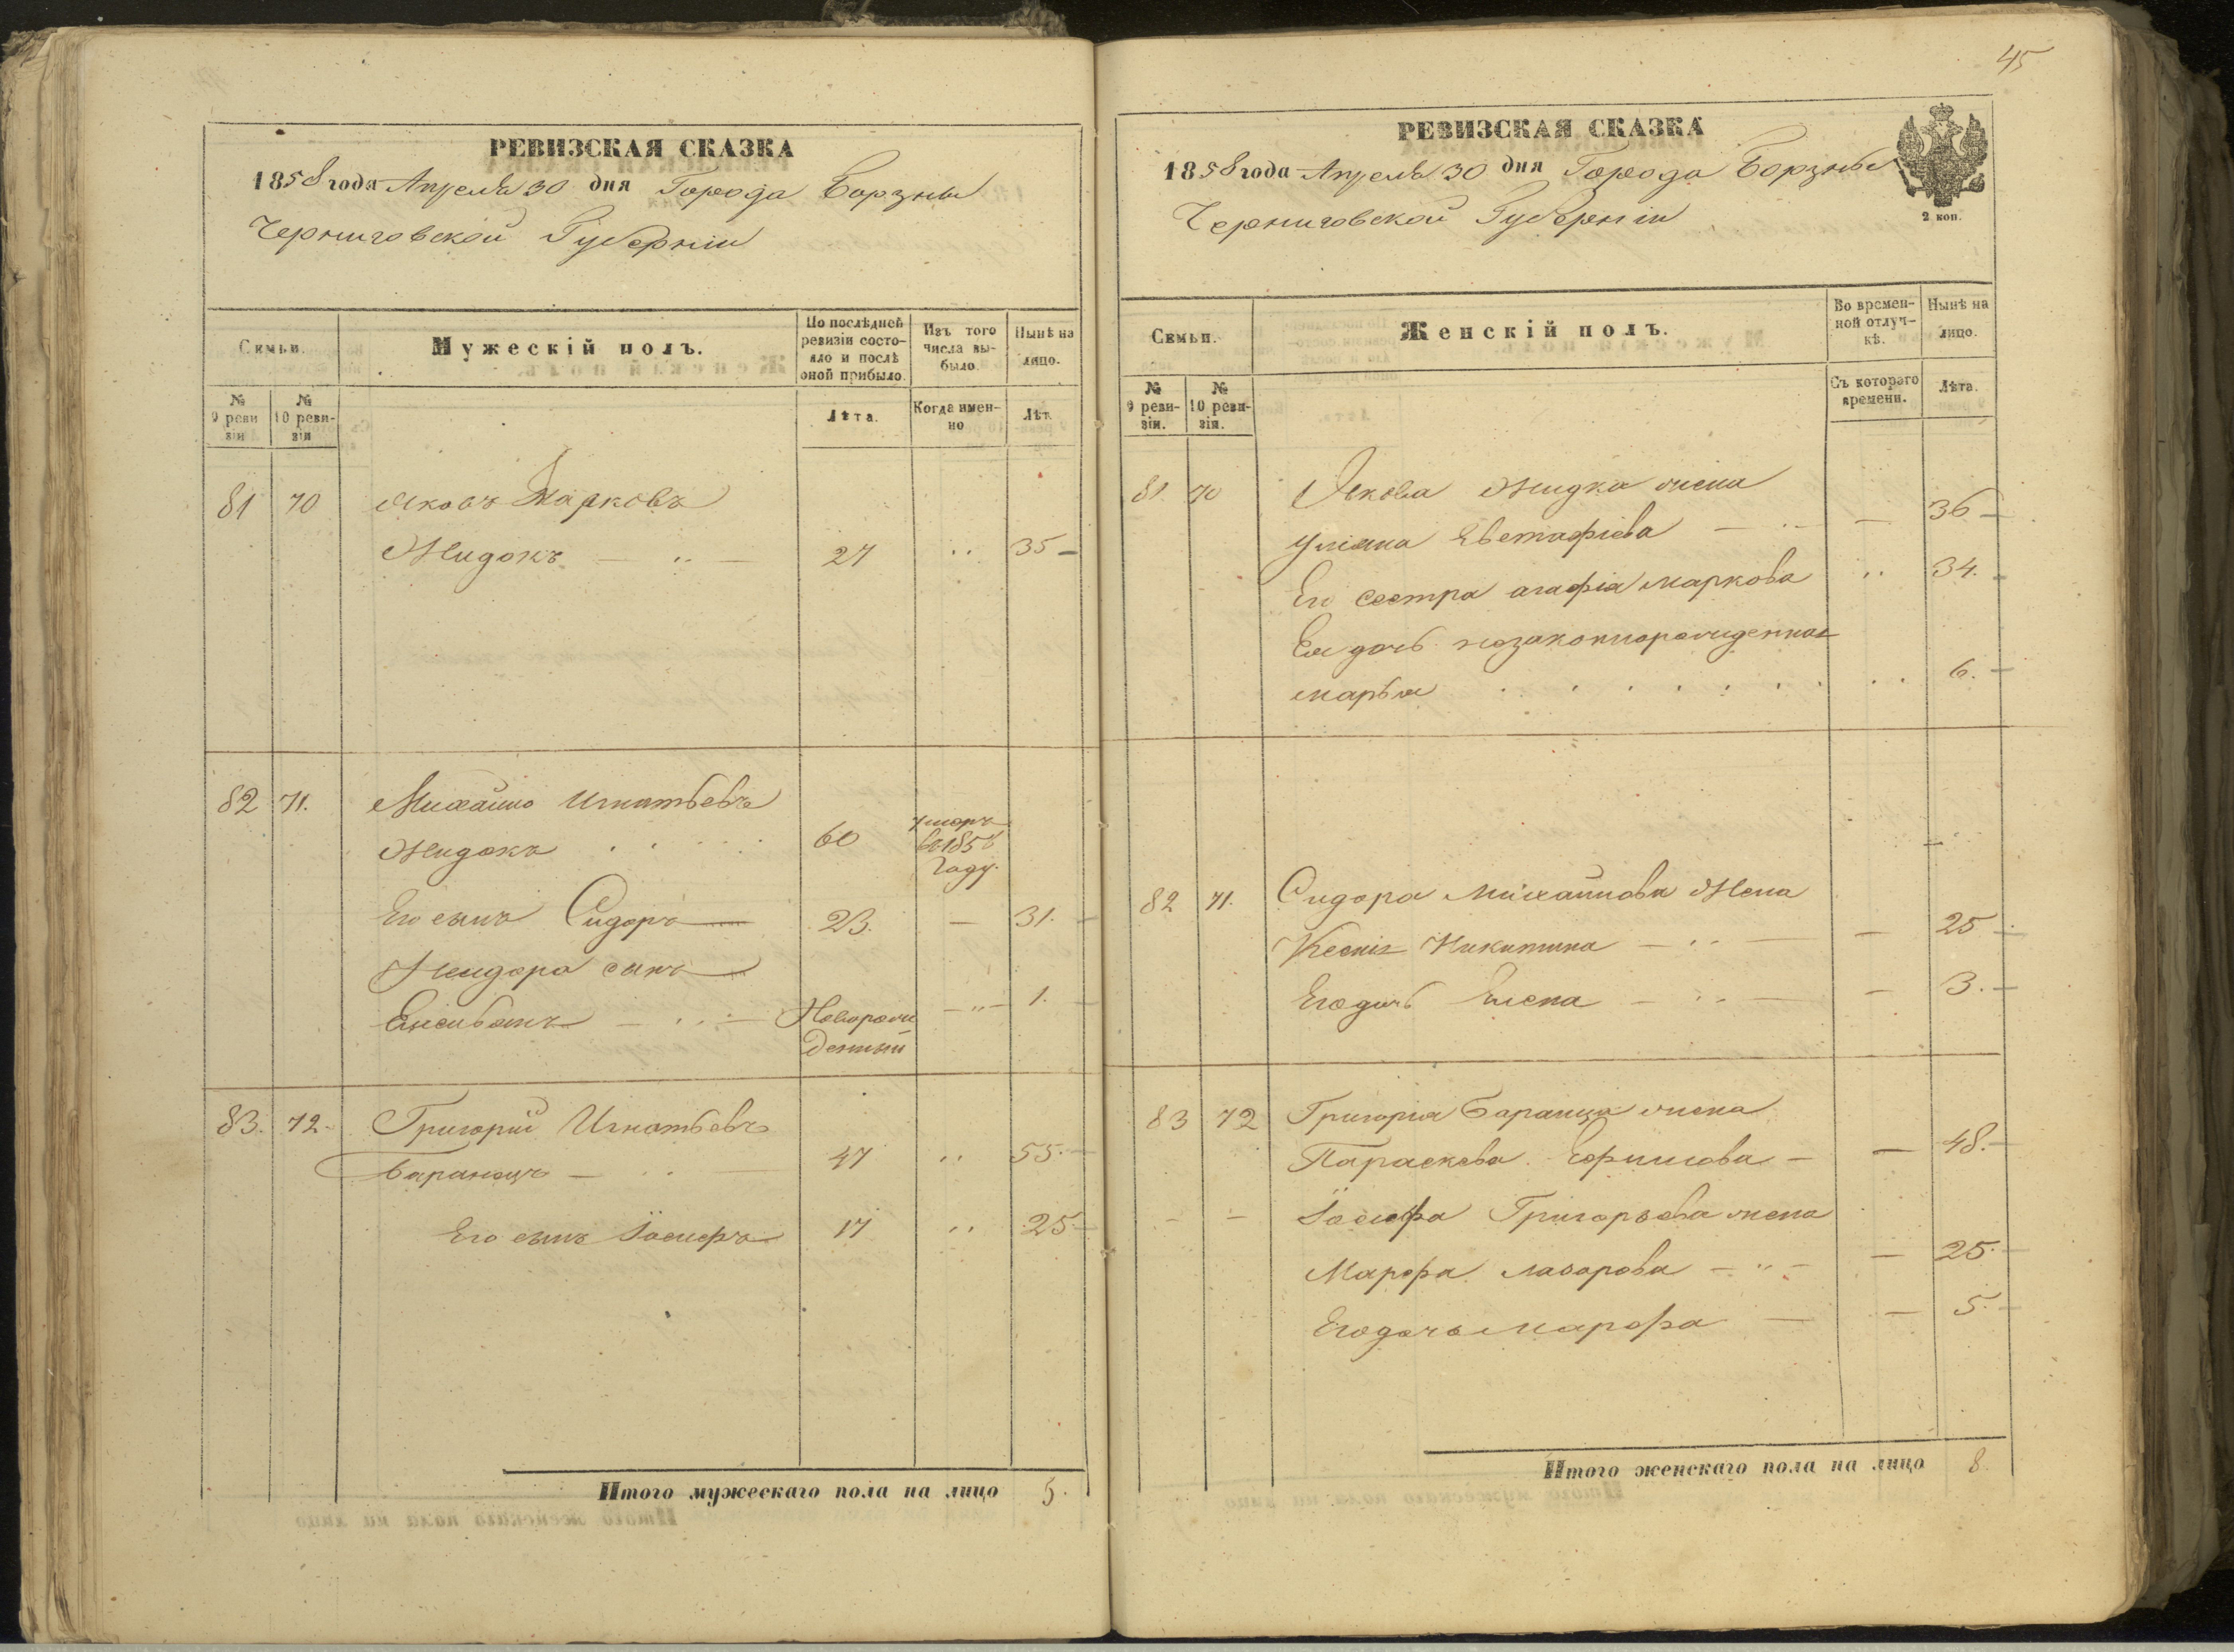 45
РЕВИЗСКАЯ СКАЗКА
1858 года Апреля 30 дня Города Борзны
Черниговской Губерніи
Семьи.
Мужескій полъ.
По послѣдней ревизіи состояло и послѣ оной прибыло.
Изъ того числа выбыло.
Нынѣ на лицо.
№ 9 ревизіи
№ 10 ревизіи
Лѣта.
Когда именно
Лѣт.
81 70 Яковъ Марковъ
Жидокъ 27 35
82 71. Михайло Игнатьевъ
Жидокъ 60 умеръ в 1856 году.
Его сынъ Сидоръ 23. 31.
сынъ
Новорожденный 1.
83. 72. Григорій Игнатьевъ
Баранецъ 47 55.
Его сынъ Іосифъ 17 25.
Итого мужескаго пола на лицо 5.
РЕВИЗСКАЯ СКАЗКА
1858 года Апреля 30 дня Города Борзны
Черниговской Губерніи
2 коп.
Семьи.
Женскій полъ.
Во временной отлучкѣ.
Нынѣ на лицо.
№ 9 ревизіи.
№ 10 ревизія.
Съ котораго времени.
Лѣта.
81. 70 Якова Жидка жена
Уліяна Евстафіева 36
Его сестра агафія маркова 34.
Ея дочь незаконнорожденная
марья 6.
82 71. Сидора Михайлова Жена
Ксенія Никитина 25
Его дочь Елена 3.
83 72 Григорія Баранца жена
Параскева Ефимова 48.
Іосифа Григорьева жена
Марфа лазарова 25.
Его дочь марфа 5.
Итого женскаго пола на лицо 8